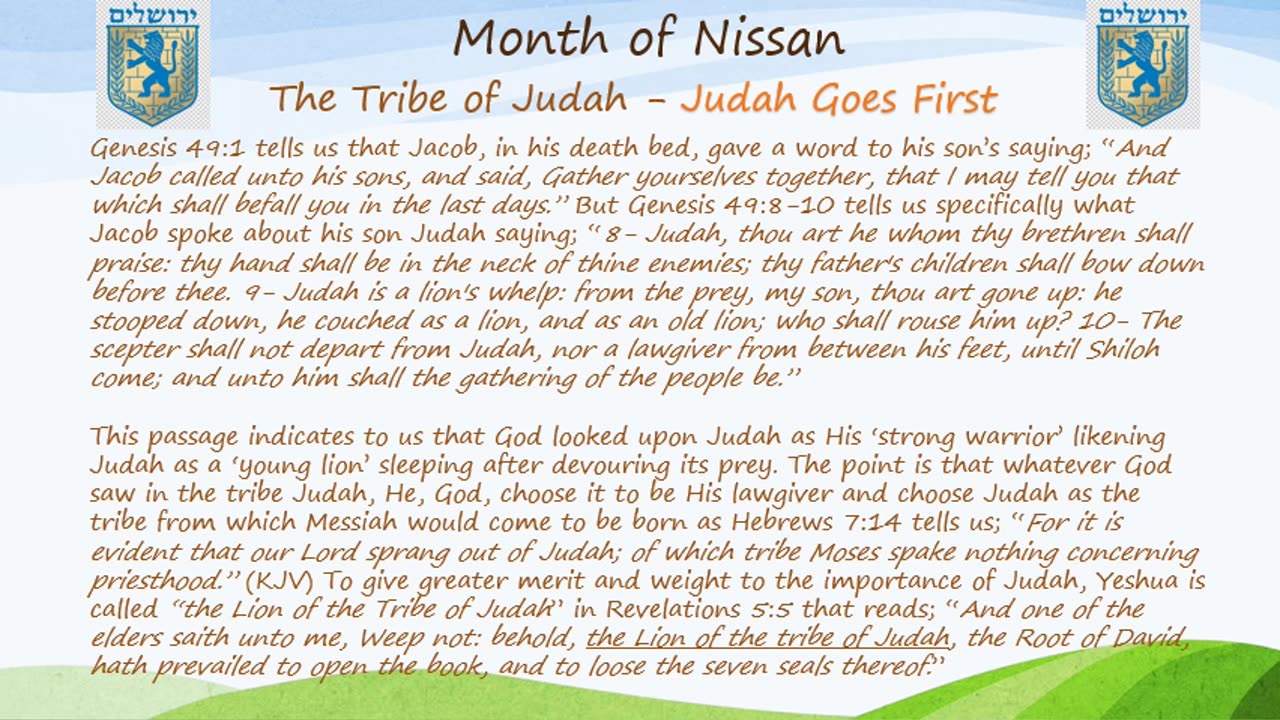 ירושלים
ירושלים
Month of Nissan
The Tribe of Judah - Judah Goes First
Genesis 49:1 tells us that Jacob, in his death bed, gave a word to his son’s saying; “And
Jacob called unto his sons, and said, Gather yourselves together, that I may tell you that
which shall befall you in the last days.” But Genesis 49:8-10 tells us specifically what
Jacob spoke about his son Judah saying; “8- Judah, thou art he whom thy brethren shall
praise: thy hand shall be in the neck of thine enemies; thy father's children shall bow down
before thee. 9- Judah is a lion's whelp: from the prey, my son, thou art gone up: he
stooped down, he couched as a lion, and as an old lion; who shall rouse him up? 10- The
scepter shall not depart from Judah, nor a lawgiver from between his feet, until Shiloh
come; and unto him shall the gathering of the people be.”
This passage indicates to us that God looked upon Judah as His ‘strong warrior’ likening
Judah as a ‘young lion’ sleeping after devouring its prey. The point is that whatever God
saw in the tribe Judah, He, God, choose it to be His lawgiver and choose Judah as the
tribe from which Messiah would come to be born as Hebrews 7:14 tells us; “For it is
evident that our Lord sprang out of Judah; of which tribe Moses spake nothing concerning
priesthood.” (KJV) To give greater merit and weight to the importance of Judah, Yeshua is
called “the Lion of the Tribe of Judah” in Revelations 5:5 that reads; “And one of the
elders saith unto me, Weep not: behold, the Lion of the tribe of Judah, the Root of David,
hath prevailed to open the book, and to loose the seven seals thereof.”